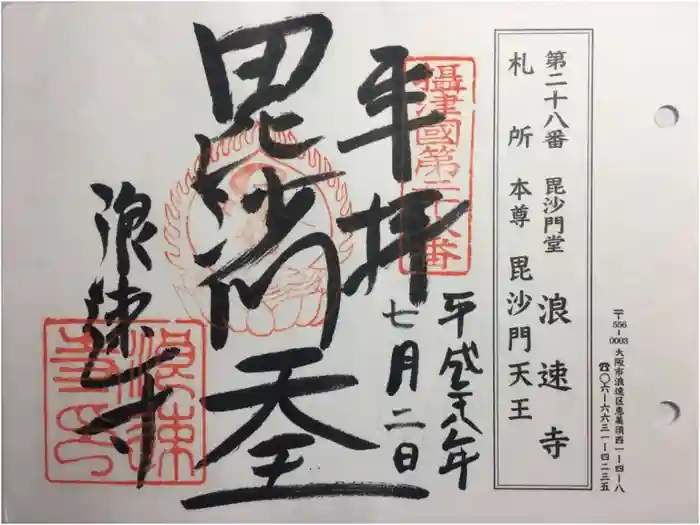 〒556-0003 大阪市浪速区恵美須西一-四-八
☎〇六-六六三一-四二三五
第二十八番 毘沙門堂 浪速寺
札所本尊 毘沙門天王
攝津國第二十八番
奉拝
平成二十八年
七月二日
毘沙門天王
浪速寺
浪速寺印